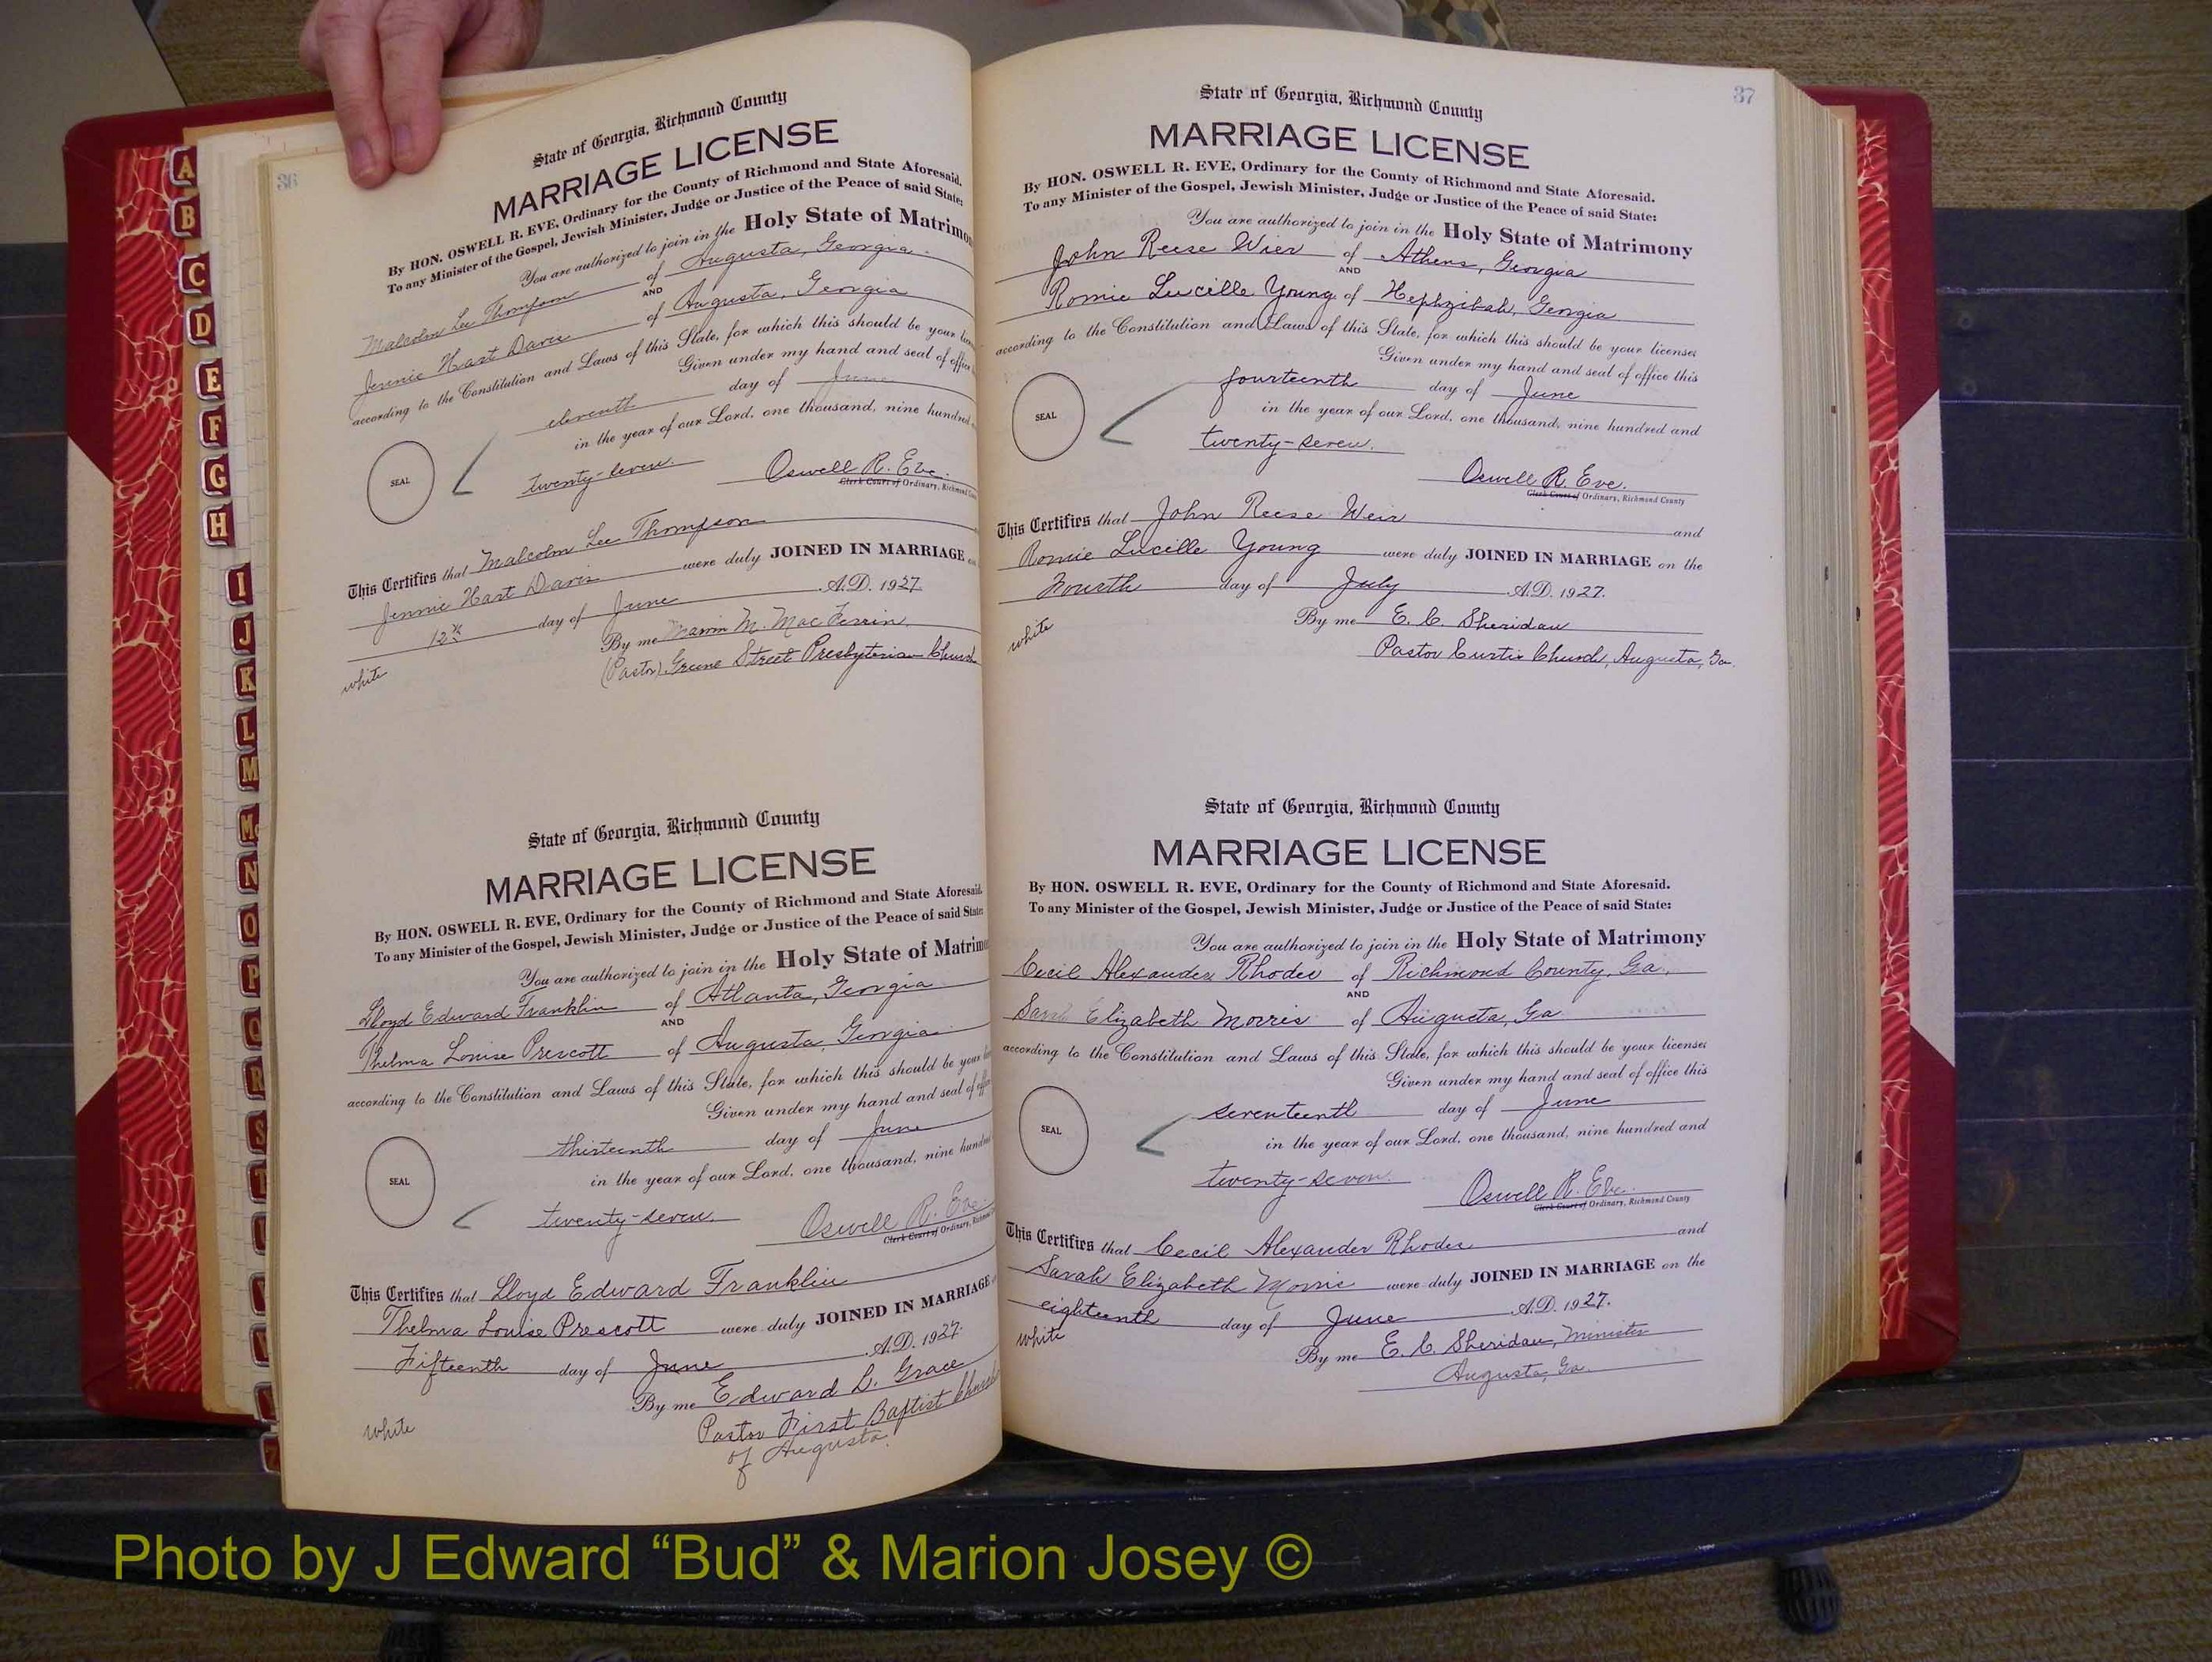 36
State of Georgia, Richmond County
MARRIAGE LICENSE
By HON. OSWELL R. EVE, Ordinary for the County of Richmond and State Aforesaid.
To any Minister of the Gospel, Jewish Minister, Judge or Justice of the Peace of said State:
You are authorized to join in the Holy State of Matrimo
Malcolm Lee Thompson of Augusta, Georgia.
AND
Jennie Hart Davis of Augusta, Georgia
according to the Constitution and Laws of this State, for which this should be your
Given under my hand and seal of office
eleventh day of June
in the year of our Lord, one thousand, nine hundred
SEAL
twenty-seven. Oswell R. Eve.
Clerk Court of Ordinary, Richmond
This Certifies that Malcolm Lee Thompson
Jennie Hart Davis were duly JOINED IN MARRIAGE
12th day of June A.D. 1927
By me M. Mac Ferrin.
white
(Pastor) Greene Street Presbyterian Church
State of Georgia, Richmond County
MARRIAGE LICENSE
By HON. OSWELL R. EVE, Ordinary for the County of Richmond and State Aforesaid.
To any Minister of the Gospel, Jewish Minister, Judge or Justice of the Peace of said State:
You are authorized to join in the Holy State of Matrim
Lloyd Edward Franklin of Atlanta, Georgia
AND
Thelma Louise Prescott of Augusta, Georgia
according to the Constitution and Laws of this State, for which this should be your
Given under my hand and seal of
thirteenth day of June
in the year of our Lord, one thousand, nine hund
SEAL
twenty-seven. Oswell R. Eve.
Clerk Court of Ordinary, Richmond
This Certifies that Lloyd Edward Franklin
Thelma Louise Prescott were duly JOINED IN MARRIAGE
Fifteenth day of June A.D. 1927.
By me Edward L. Grace
white
Pastor First Baptist Church
of Augusta.
37
State of Georgia, Richmond County
MARRIAGE LICENSE
By HON. OSWELL R. EVE, Ordinary for the County of Richmond and State Aforesaid.
To any Minister of the Gospel, Jewish Minister, Judge or Justice of the Peace of said State:
You are authorized to join in the Holy State of Matrimony
John Reese Wier of Athens, Georgia
AND
Romie Lucille Young of Hephzibah, Georgia
according to the Constitution and Laws of this State, for which this should be your licenses
Given under my hand and seal of office this
fourteenth day of June
SEAL
in the year of our Lord, one thousand, nine hundred and
twenty-seven.
Oswell R. Eve.
Clerk Court of Ordinary, Richmond County
This Certifies that John Reese Weir and
Romie Lucille Young were duly JOINED IN MARRIAGE on the
Fourth day of July A.D. 1927.
By me E. C. Sheridan
white
Pastor Curtis Church, Augusta, Ga.
State of Georgia, Richmond County
MARRIAGE LICENSE
By HON. OSWELL R. EVE, Ordinary for the County of Richmond and State Aforesaid.
To any Minister of the Gospel, Jewish Minister, Judge or Justice of the Peace of said State:
You are authorized to join in the Holy State of Matrimony
Cecil Alexander Rhodes of Richmond County, Ga.
AND
Sarah Elizabeth Morris of Augusta, Ga
according to the Constitution and Laws of this State, for which this should be your licenses
Given under my hand and seal of office this
seventeenth day of June
SEAL
in the year of our Lord, one thousand, nine hundred and
twenty-seven.
Oswell R. Eve.
Clerk Court of Ordinary, Richmond County
This Certifies that Cecil Alexander Rhodes and
Sarah Elizabeth Morris were duly JOINED IN MARRIAGE on the
eighteenth day of June A.D. 1927.
white
By me E. C. Sheridan, Minister
Augusta, Ga.
A
B
C
D
E
F
G
H
I
J
K
L
M
Mc
N
O
P
Q
R
S
T
Photo by J Edward “Bud” & Marion Josey ©